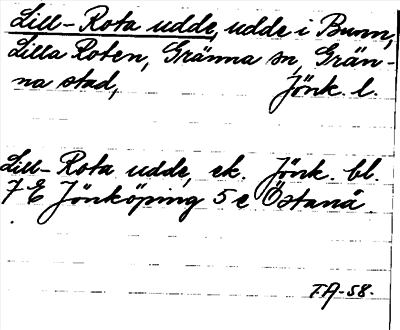 Lill-Rota udde, udde i Bunn,
Lilla Roten, Gränna sn, Grän-
na stad, Jönk. l.
Lill-Rota udde, ek. Jönk. bl.
7 E Jönköping 5 e Östanå.
TA-58.